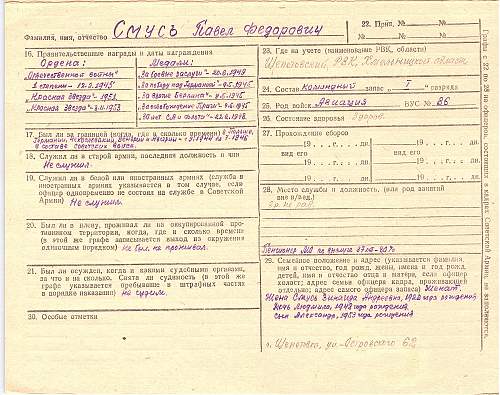 Фамилия, имя, отчество Смусь Павел Федорович
22. Прип. №
№
№
№
16. Правительственные награды и даты награждения
Ордена:
Медали:
"Отечественной войны"
"За боевые заслуги" -
I степени -
"За победу над Германией" - 9.5.1945
"Красная Звезда" -
"За взятие Берлина" - 9.5.1945
"Красная Звезда" -
"За освобождение Праги" - 9.5.1945
17. Был ли за границей (когда, где и сколько времени) В Польше,
Германии, Чехословакии, Венгрии и Австрии -
в составе советских войск.
18. Служил ли в старой армии, последняя должность и чин
Не служил.
19. Служил ли в белой или иностранных армиях (служба в
иностранных армиях указывается в том случае, если
офицер одновременно не состоял на службе в Советской
Армии) Не служил.
20. Был ли в плену, проживал ли на оккупированной про-
тивником территории, когда, где и сколько времени
(в этой же графе записывается выход из окружения
одиночным порядком) не был, не проживал.
21. Был ли осужден, когда и какими судебными органами,
за что и на сколько. Снята ли судимость (в этой же
графе указывается пребывание в штрафных частях
в порядке наказания) не судим.
30. Особые отметки
23. Где на учете (наименование РВК, области)
Шепетовский, РВК, Хмельницкой области
24. Состав командный запас "I" разряда
25. Род войск Авиация ВУС № 86
26. Состояние здоровья Здоров.
27. Прохождение сборов
вид его
вид его
19 . . г. . . дн.
19 . . г. . . дн.
19 . . г. . . дн.
19 . . г. . . дн.
19 . . г. . . дн.
19 . . г. . . дн.
28. Место службы и должность, (или род занятий
вне в/вед.)
Пенсионер МО по
29. Семейное положение и адрес (указывается фамилия,
имя и отчество, год рожд. жены, имена и год рожд.
детей, имя и отчество отца и матери, если офицер
холост; адрес семьи офицера кадра, проживающей
отдельно; адрес самого офицера запаса) Женат.
Жена Смусь Зинаида Андреевна, 1922 года рождения
Дочь Людмила, 1948 года рождения
сын Александр, 1953 года рождения
г. Шепетовка, ул. Островского 62
Графы с 22 по 28 на офицеров, состоящих в кадрах Советской Армии, не заполняются.